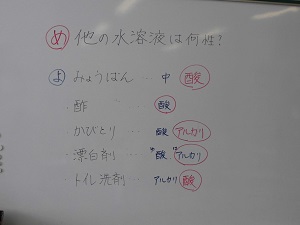 め 他の水溶液は何性?
よ みょうばん… 中 酸
・酢 … 酸
・かびとり … 酸 アルカリ
・漂白剤 … 酸 アルカリ
・トイレ洗剤… アルカリ 酸